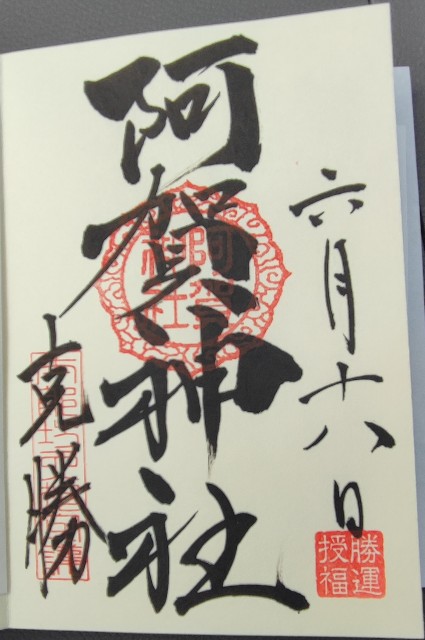 六月十八日
勝運
授福
阿賀神社
阿賀
神社
克勝